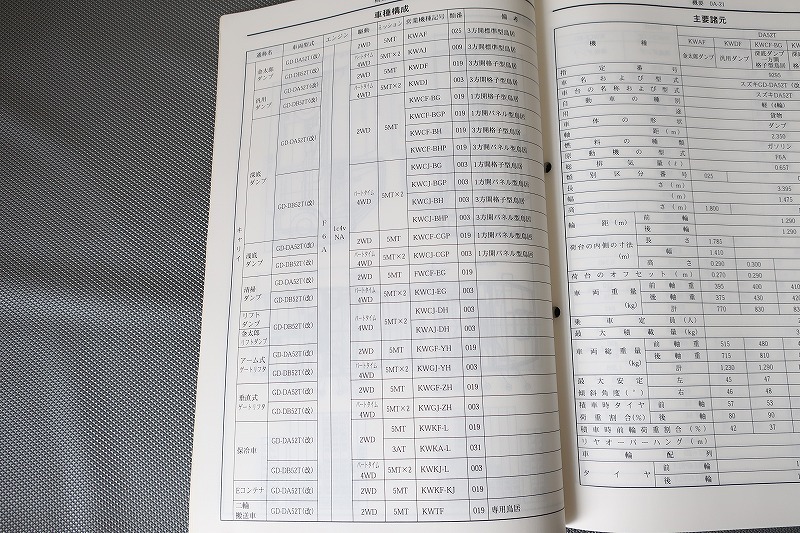 車種構成
運動名 車両型式 エンジン 駆動 ミッション 営業機種記号 類番 備考
キャリイ F6A 1c4v NA
金太郎ダンプ GD-DA52T(改) 2WD 5MT KWAF 025 3方開標準型鳥居
GD-DB52T(改) パートタイム4WD 5MT×2 KWAJ 009 3方開標準型鳥居
汎用ダンプ GD-DA52T(改) 2WD 5MT KWDF 019 3方開格子型鳥居
GD-DB52T(改) パートタイム4WD 5MT×2 KWDJ 003 3方開格子型鳥居
深底ダンプ GD-DA52T(改) 2WD 5MT KWCF-BG 019 1方開格子型鳥居
KWCF-BGP 019 1方開パネル型鳥居
KWCF-BH 019 3方開格子型鳥居
KWCF-BHP 019 3方開パネル型鳥居
GD-DB52T(改) パートタイム4WD 5MT×2 KWCJ-BG 003 1方開格子型鳥居
KWCJ-BGP 003 1方開パネル型鳥居
KWCJ-BH 003 3方開格子型鳥居
KWCJ-BHP 003 3方開パネル型鳥居
GD-DA52T(改) 2WD 5MT KWCF-CGP 019 1方開パネル型鳥居
ダンプ GD-DB52T(改) パートタイム4WD 5MT×2 KWCJ-CGP 003 1方開パネル型鳥居
清掃ダンプ GD-DA52T(改) 2WD 5MT FWCF-EG 019
GD-DB52T(改) パートタイム4WD 5MT×2 KWCJ-EG 003
リフトダンプ GD-DB52T(改) パートタイム4WD 5MT×2 KWCJ-DH 003
金太郎リフトダンプ KWAJ-DH 003
アーム式ゲートリフタ GD-DA52T(改) 2WD 5MT KWGF-YH 019
GD-DB52T(改) パートタイム4WD 5MT×2 KWGJ-YH 003
垂直式ゲートリフタ GD-DA52T(改) 2WD 5MT KWGF-ZH 019
GD-DB52T(改) パートタイム4WD 5MT×2 KWGJ-ZH 003
保冷車 GD-DA52T(改) 2WD 5MT KWKF-L 019
3AT KWKA-L 031
GD-DB52T(改) パートタイム4WD 5MT×2 KWKJ-L 003
Eコンテナ GD-DA52T(改) 2WD 5MT KWKF-KJ 019
二輪搬送車 GD-DA52T(改) 2WD 5MT KWTF 019 専用鳥居
概要 0A-21
主要諸元
機種 DA52T
KWAF KWDF KWCF-BG
金太郎ダンプ 汎用ダンプ 深底ダンプ 1方開 格子型鳥居
指定番号 9295
車名および型式 スズキGD-DA52T (改
車台の名称および型式 スズキDA52T
自動車の種別 軽 (4輪)
用途 貨物
車体の形状 ダンプ
軸距 (m) 2.350
燃料の種類 ガソリン
原動機の型式 F6A
総排気量 (ℓ) 0.657
類別区分番号 025
長さ (m) 3.395
幅 (m) 1.475
高さ (m) 1.800
輪距 (m) 前輪 1.290
後輪 1.290
荷台の内側の寸法 (m) 長さ 1.785
幅 1.410
高さ 0.290 0.300
荷台のオフセット (m) 0.270 0.290
車両重量 (kg) 前軸重 395 400 410
後軸重 375 430 420
計 770 830 83
乗車定員 (人)
最大積載量 (kg) 3
車両総重量 (kg) 前軸重 515 480
後軸重 715 810
計 1.230 1.290
最大安定傾斜角度 (°) 左 45 47
右 46 48
積車時タイヤ荷重割合(%) 前軸 57 53
後軸 80 90
積車時前輪荷重割合 (%) 42 37
リヤオーバーハング (m)
車輪配列
タイヤ 前輪
後輪